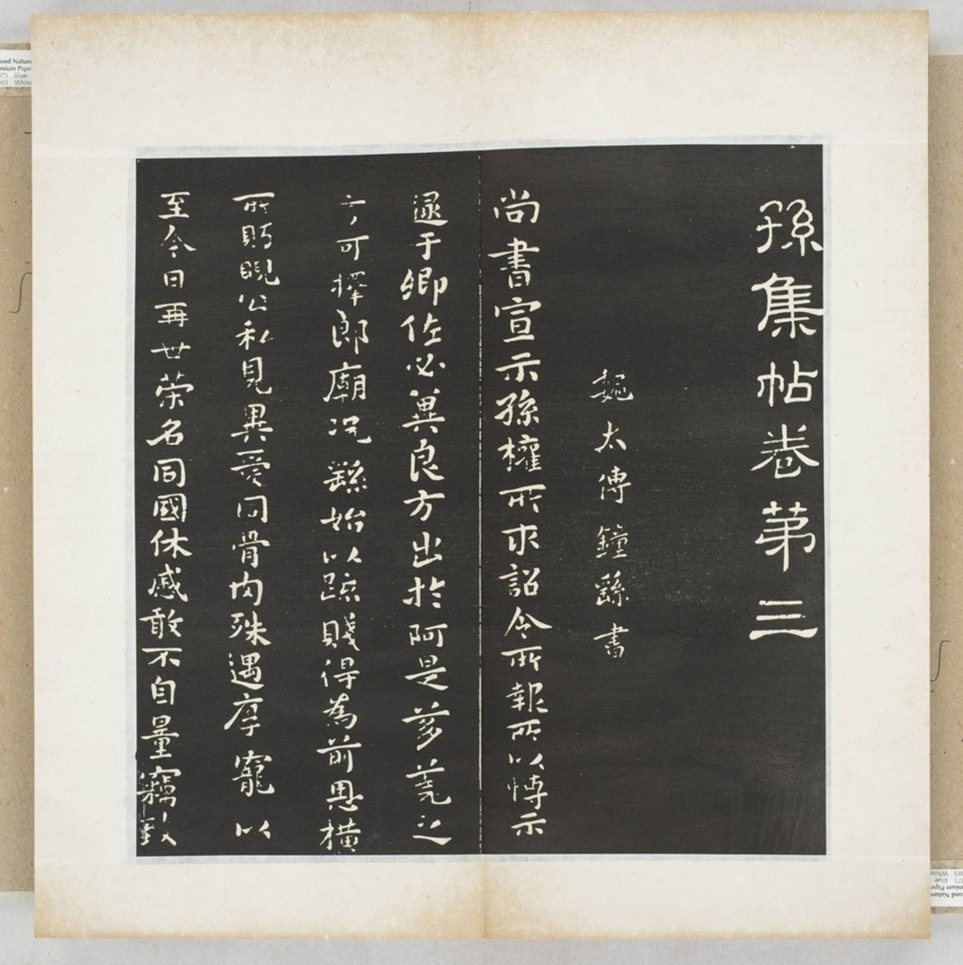 孫集帖卷第三
魏太傅鍾繇書
尚書宣示孫權所求詔令所報所以博示
逮于卿佐必冀良方出於阿是芻蕘之
言可擇郎廟況繇始以疏賤得為前恩橫
所盱睨公私見異愛同骨肉殊遇厚寵以
至今日再世榮名同國休慼敢不自量竊致